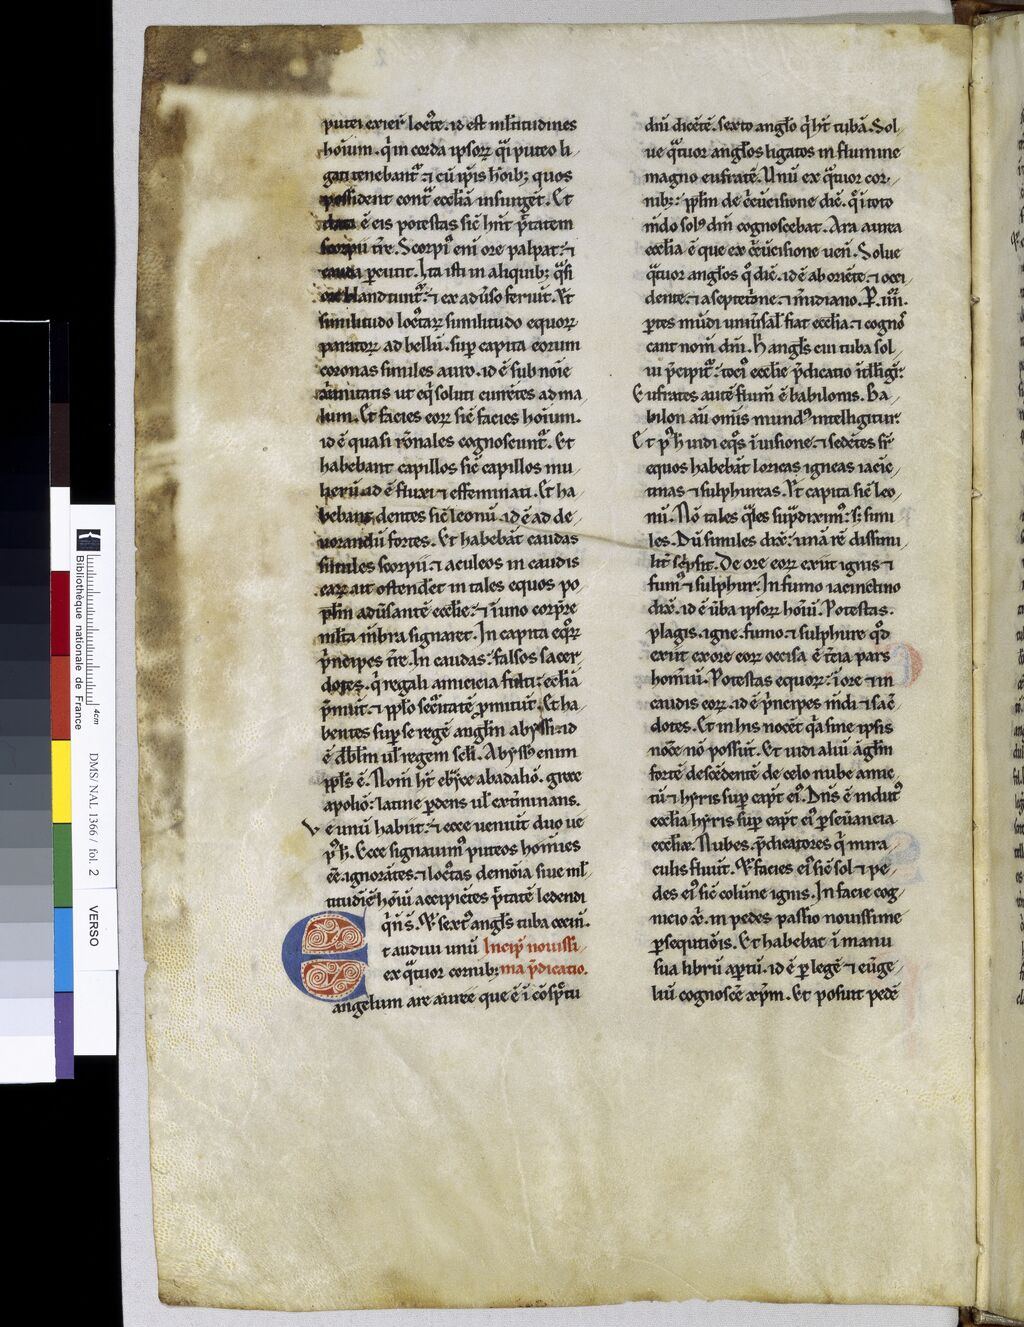 putei exier̄ locꝰte. id est ml̄titudines
hoīum. q̄ in corda ipsoꝝ q̄i puteo li
gati tenebant᷑ ⁊ cū ip̄is hoīb; quos
possident cont̄ eccl̄iā insurgēt. Et
data ē eis potestas sic̄ hn̄t p̄tatem
scorpii tr̄e. Scorpiꝰ eni ore palpat᷑ ⁊
cauda ꝑcutit. Ita isti in aliquib; q̄si
ore blandiunt᷑ ⁊ ex adūso feriūt. Et
similitudo locꝰtaꝝ similitudo equoꝝ
paratoꝝ ad bellū. suꝑ capita eorum
coronas similes auro. id ē sub noīe
ut eq̄i soluti currētes ad ma
lum. Et facies eoꝝ sic̄ facies hoīum.
id ē quasi rōnales cognoscunt᷑. Et
habebant capillos sic̄ capillos mu
lierū id ē fluxi ⁊ effeminati. Et ha
bebant dentes sic̄ leonū id ē ad de
uorandū fortes. Et habebāt caudas
similes scorpiū ⁊ aculeos in caudis
eaꝝ ut ostenderet in tales equos po
pl̄m adūsantē eccl̄ie ⁊ ī uno corꝑre
ml̄ta mb̄ra signaret. In capita eqꝝ
p̄ncipes tr̄e. In caudas falsos sacer
dotes. q̄ regali amicicia fulti eccl̄iā
p̄mūt ⁊ pp̄lo sec̄itatē ꝓmittūt. Et ha
bentes suꝑ se regē angl̄m abyssi. id
ē dbl̄m ul̄ regem scl̄i. Abyssꝰ enim
ppl̄s ē. Nom̄ ht̄ ebr̄ice abadaliō. grece
apoliō latine ꝑdens ul̄ extīminans.
Ve unū habiit ⁊ ecce ueniūt duo ue
p̄ꝰ h̄. Ecce signauimꝰ puteos homīes
eē ignorātes ⁊ locꝰtas demōia siue ml̄
titudiē hoīū accipiētes p̄tatē ledendi
q̄nꝗꝫ ms̄. Et sextꝰ angl̄s tuba cecin̄.
Et audiui unū Incip̄ nouissi
ex q̄tuor cornib; ma p̄dicatio.
angelum are auree que ē ī cōsp̄tu
dn̄i dicētē. sexto angl̄o q̄ ht̄ tubā. Sol
ue q̄tuor angl̄os ligatos in flumine
magno eufratē. Unū ex q̄tuor cor
nib; ppl̄m de c̄cūcisione dic̄. q̄ i toto
mūdo solꝰ dm̄ cognoscebat. Ara aurea
eccl̄ia ē que ex c̄cūcisione uen̄. Solue
q̄tuor angl̄os q̄ dic̄. id ē ab oriēte ⁊ occi
dente ⁊ a septētōne ⁊ m̄idiano.
ꝑtes mūdi uniūsal̄ fiat eccl̄ia ⁊ cogno
cant nom̄ dm̄. H̄ angl̄s cui tuba sol
ui p̄cipit᷑ tociꝰ eccl̄ie p̄dicatio ītell̄igit᷑
Eufrates autē flum̄ ē babilonis. Ba
bilon aū om̄is mundꝰ intelligitur.
Et pꝰ h̄ uidi eqꝰs ī uisione ⁊ sedētes sr̄
equos habebāt loricas igneas iacic
tinas ⁊ sulphureas. Et capita sic̄ leo
nū. Nō tales q̄les sup̄diximꝰ s; simi
les. Dū similes dix̄ unā rē dissimi
lit̄ sc̄psit. De ore eoꝝ exiit ignis ⁊
fumꝰ ⁊ sulphur. In fumo iacinctino
dix̄. id ē ūba ipsoꝝ hoīū. Potestas.
plagis. igne. fumo ⁊ sulphure qꝰd
exiit ex ore eoꝝ occisa ē t̄cia pars
homīū. Potestas equoꝝ ī ore ⁊ in
caudis eoꝝ id ē p̄ncipes mūdi ⁊ sac̄
dotes. Et in his nocēt q̄a sine ipsis
noc̄e nō possūt. Et uidi aliū āgl̄m
fortē descēdentē de celo nube amic
tū ⁊ hyris suꝑ cap̄t eiꝰ. Dn̄s ē indutꝰ
eccl̄ia hyris suꝑ cap̄t eiꝰ ꝑseūancia
eccl̄iæ. Nubes. p̄dicatores q̄ mira
culis fluūt. Et facies eiꝰ sic̄ sol ⁊ pe
des eiꝰ sic̄ colūne ignis. In facie cog
nicio xp̄i in pedes passio nouissime
ꝑsequtiōis. Et habebat ī manu
sua librū aꝑtū. id ē ꝑ legē ⁊ eūge
liū cognosc̄e xp̄m. Et posuit pedē
Bibliothèque nationale de France
4cm
DMS/ NAL 1366 / fol. 2 VERSO